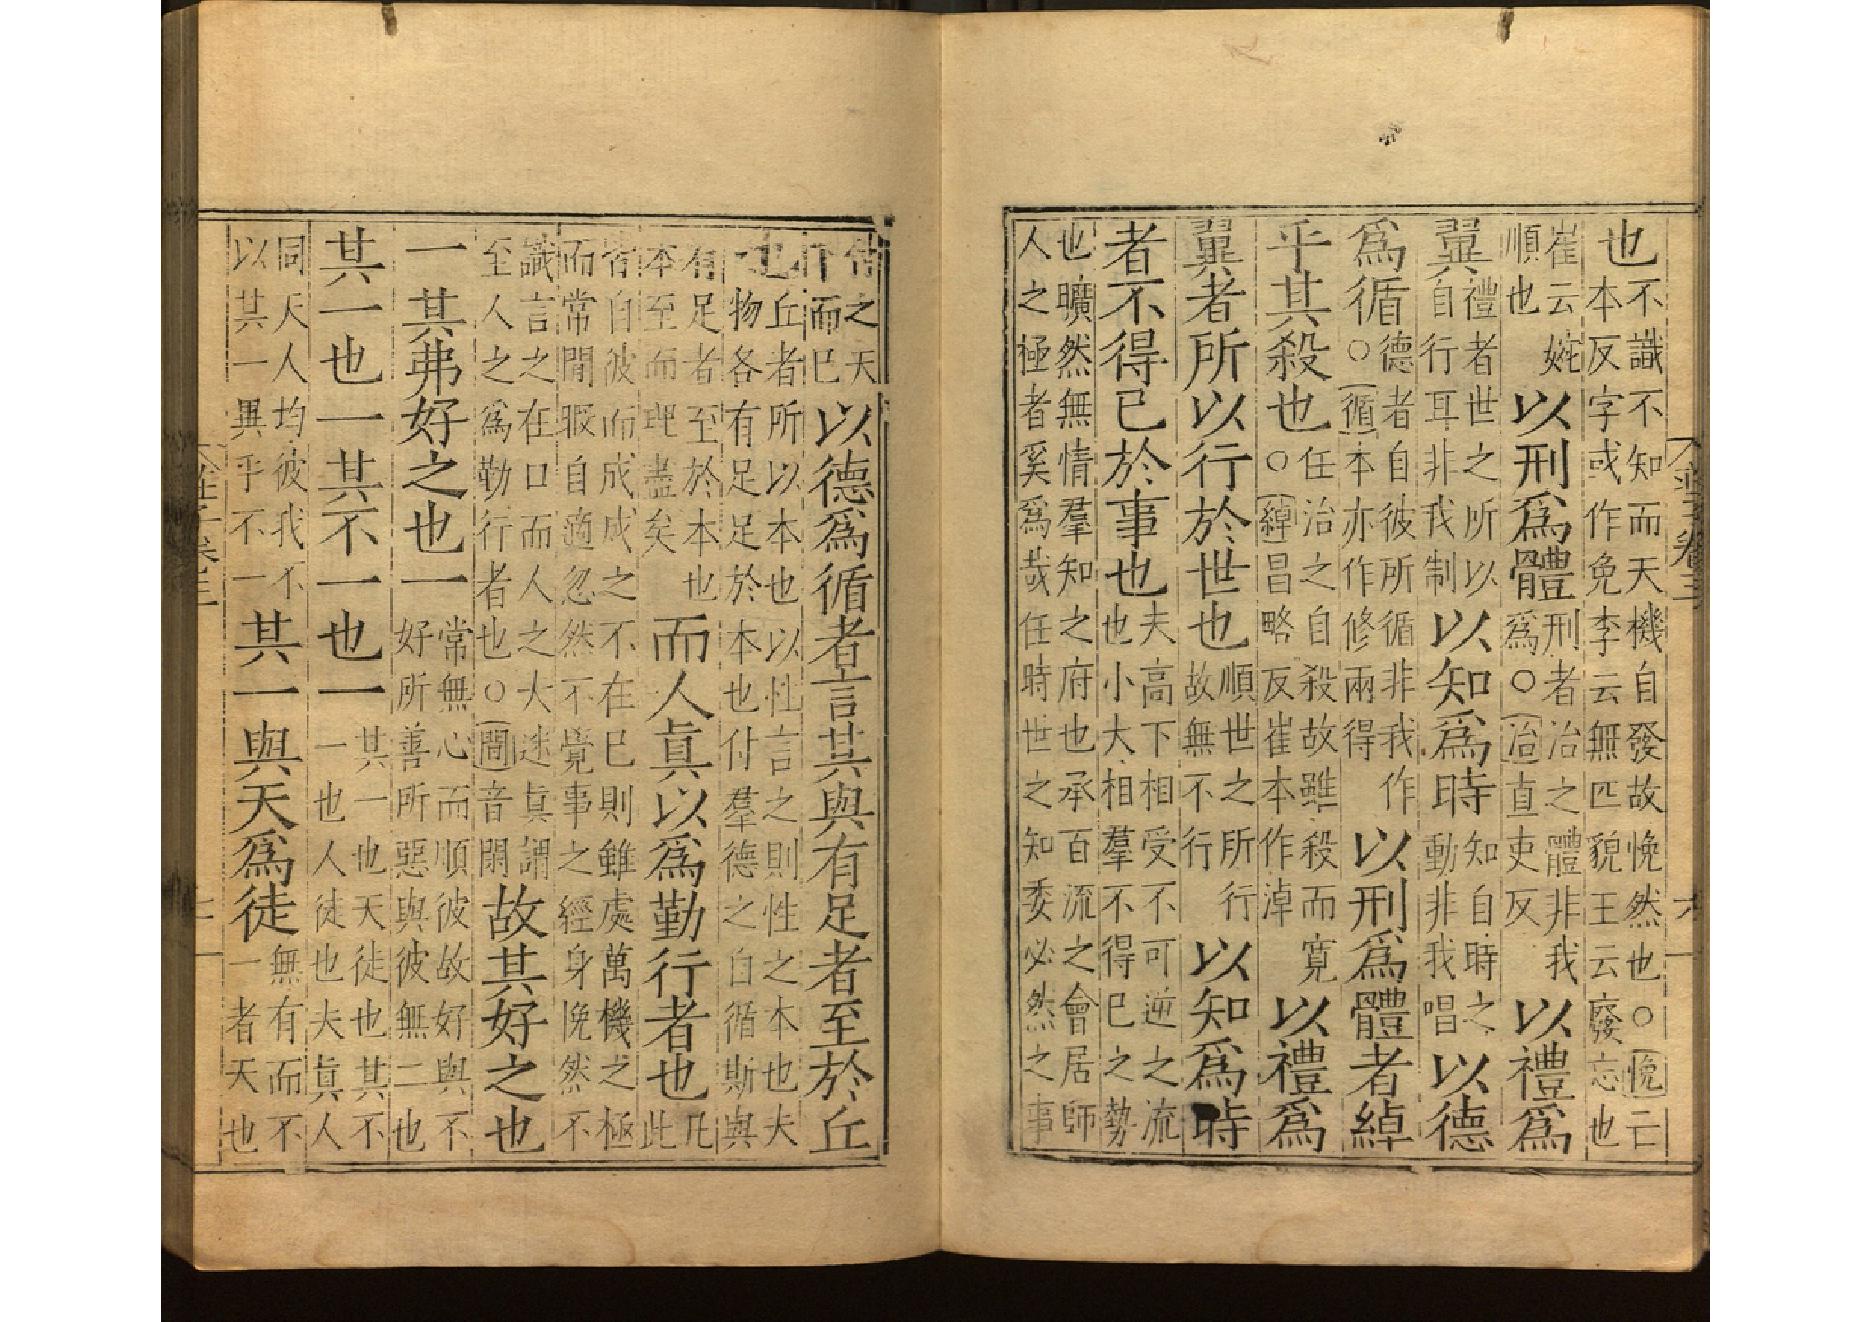 也不識不知而天機自發故悗然也○悗亡本反字或作免李云無匹貌王云廢忘也
崔云婉順也以刑爲體刑者治之體非我爲○治直吏反以禮爲
翼禮者世之所以自行耳非我制以知爲時知自時之動非我唱以德
爲循德者自彼所循非我作○循本亦作修兩得以刑爲體者綽
乎其殺也任治之自殺故雖殺而寬○綽昌略反崔本作淖以禮爲
翼者所以行於世也順世之所行故無不行以知爲時
者不得已於事也夫高下相受不可逆之流也小大相羣不得已之勢
也曠然無情羣知之府也承百流之會居師人之極者奚爲哉任時世之知委必然之事
付之天下而已以德爲循者言其與有足者至於丘
也丘者所以本也以性言之則性之本也夫物各有足足於本也付羣德之自循斯與
有足者至於本也本至而理盡矣而人眞以爲勤行者也凡此
皆自彼而成成之不在己則雖處萬機之極而常閒暇自適忽然不覺事之經身悗然不
識言之在口而人之大迷眞謂至人之爲勤行者也○閒音閑故其好之也
一其弗好之也一常無心而順彼故好與不好所善所惡與彼無二也
其一也一其不一也一其一也天徒也其不一也人徒也夫眞人
同天人均彼我不以其一異乎不一其一與天爲徒無有而不一者天也